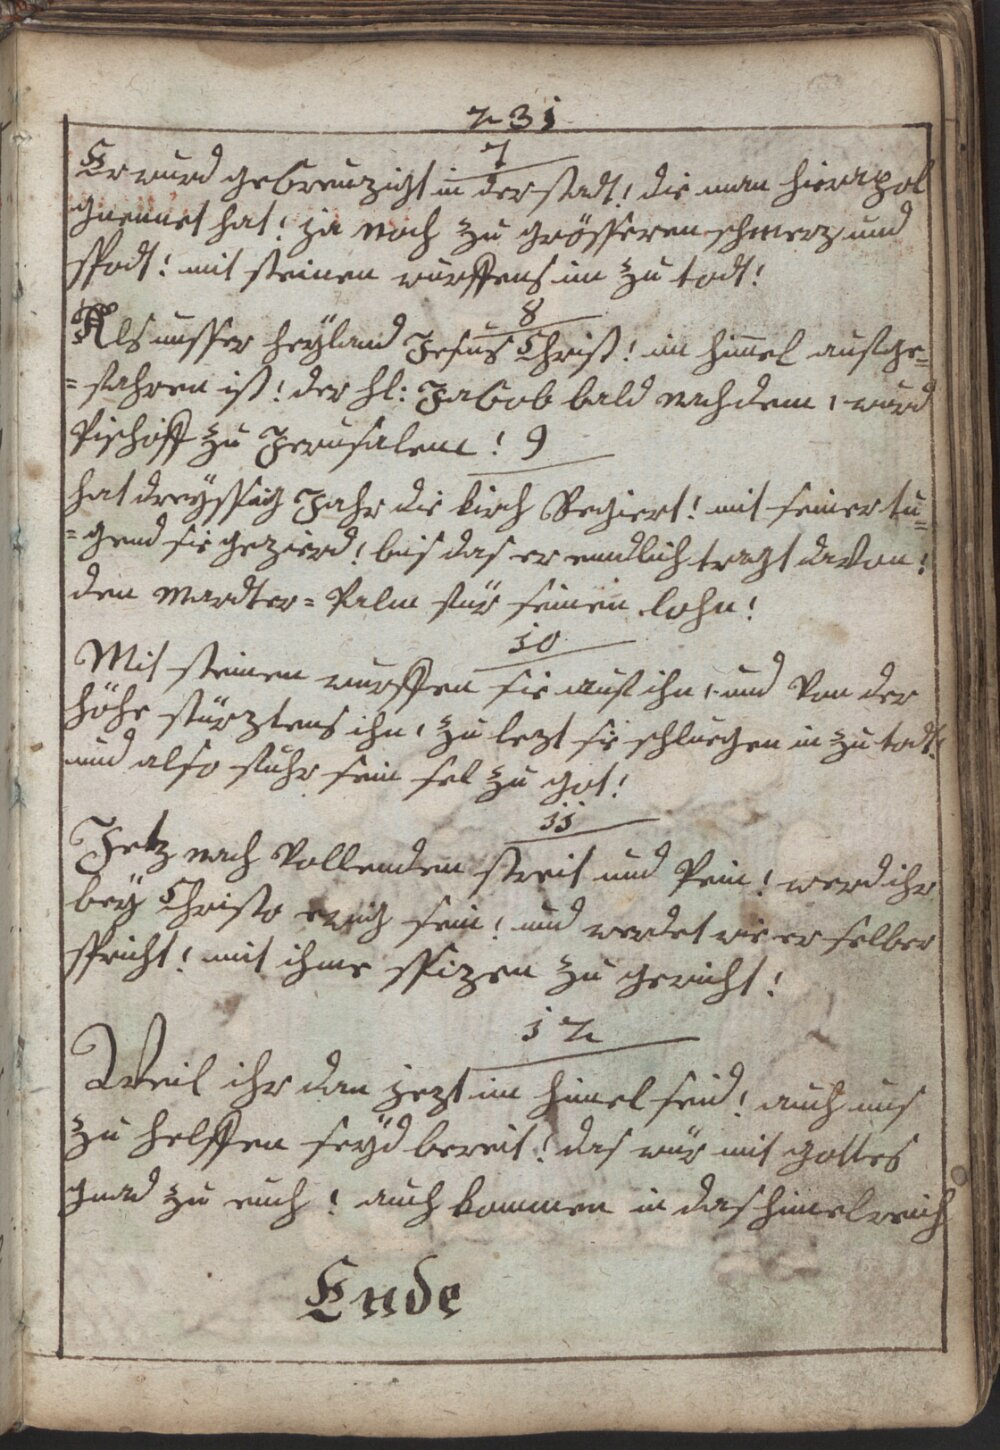 231
7
Er wurd gecreuzigt in der stadt! die man hierapol
gnennet hat! ja noch zu grösseren schmerz und
spodt! mit steinen wurffens im zu todt!
8
Als unsser heÿland Jesus Christ! im himel aufge=
=fahren ist! der hl: Jacob bald nach dem, wurd
Pischoff zu Jerusalem!
9
hat dreÿssig Jahr die kirch Regiert! mit seiner tu=
=gend sie gezierd! bis das er enndlich tragt davon!
den Mardter=Palm für seinen lohn!
10
Mit steinen wurffen sie auf ihn, und Von der
höhe stürztens ihn, zu lezt sie schluegen in zu todt!
und also fuhr sein sel zu got!
11
Jetz nach Vollendem streit und Pein! werd ihr
beÿ Christo ewig sein! und werdet wie er selber
spricht! mit ihme sizen zu gericht!
12
Weil ihr dan jezt im himel seid! auch uns
zu helffen seÿd bereit! das wür mit gottes
gnad zu euch! auch kommen in das himelreich
Ende